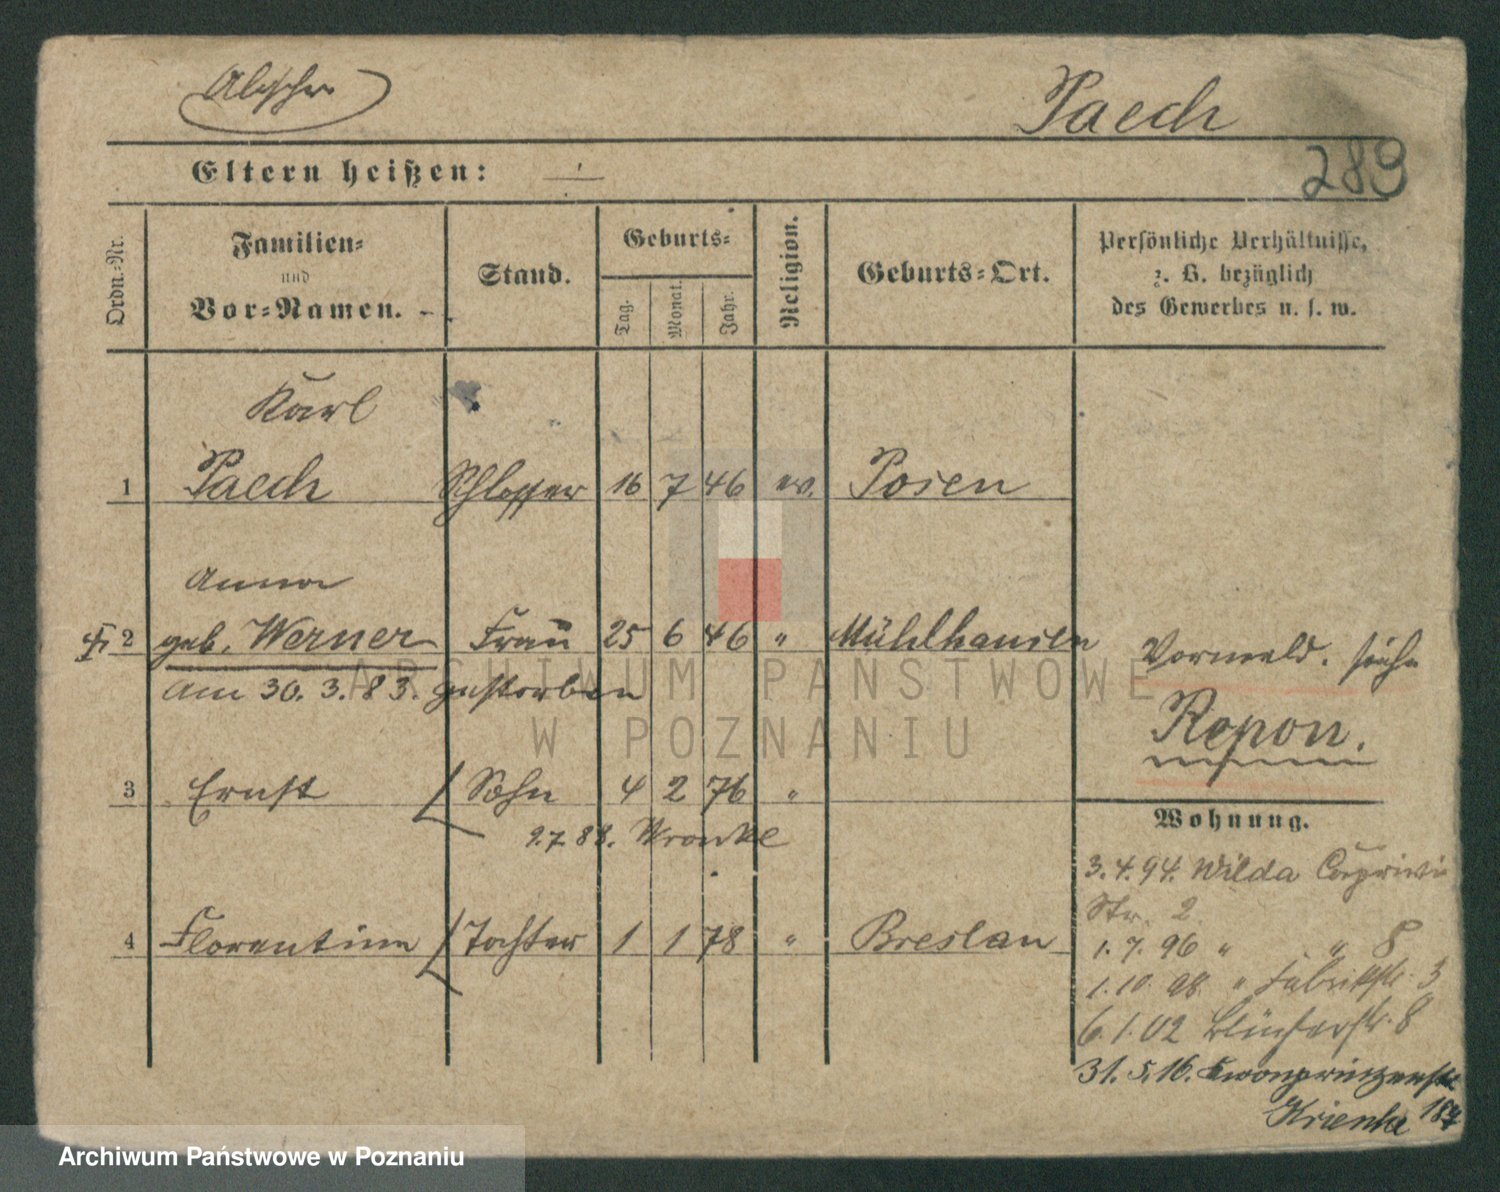 Paech
289
Eltern heißen:
Ordn.=Nr.
Familien=
und
Vor=Namen.
Stand.
Geburts=
Tag.
Monat.
Jahr.
Religion.
Geburts=Ort.
Persönliche Verhältnisse,
z. B. bezüglich
des Gewerbes u. s. w.
Karl
1 Paech Schlosser 16 7 46 ev. Posen
Anna
2 geb. Werner Frau 25 6 46 " Mühlhausen
am 30. 3. 83. gestorben
Vormald. siehe
Repon.
3 Ernst Sohn 4 2 76 "
9.7.88. Wronke
4 Florentine Tochter 1 1 78 " Breslau
Wohnung.
3.4.94. Wilda Caprivi
Str. 2.
1.7.96 " " 8
1.10.98 " Fabrikstr. 3
6.1.02 Blücherstr. 8
31.5.16. Kronprinzenstr.
ARCHIWUM PAŃSTWOWE
W POZNANIU
Archiwum Państwowe w Poznaniu